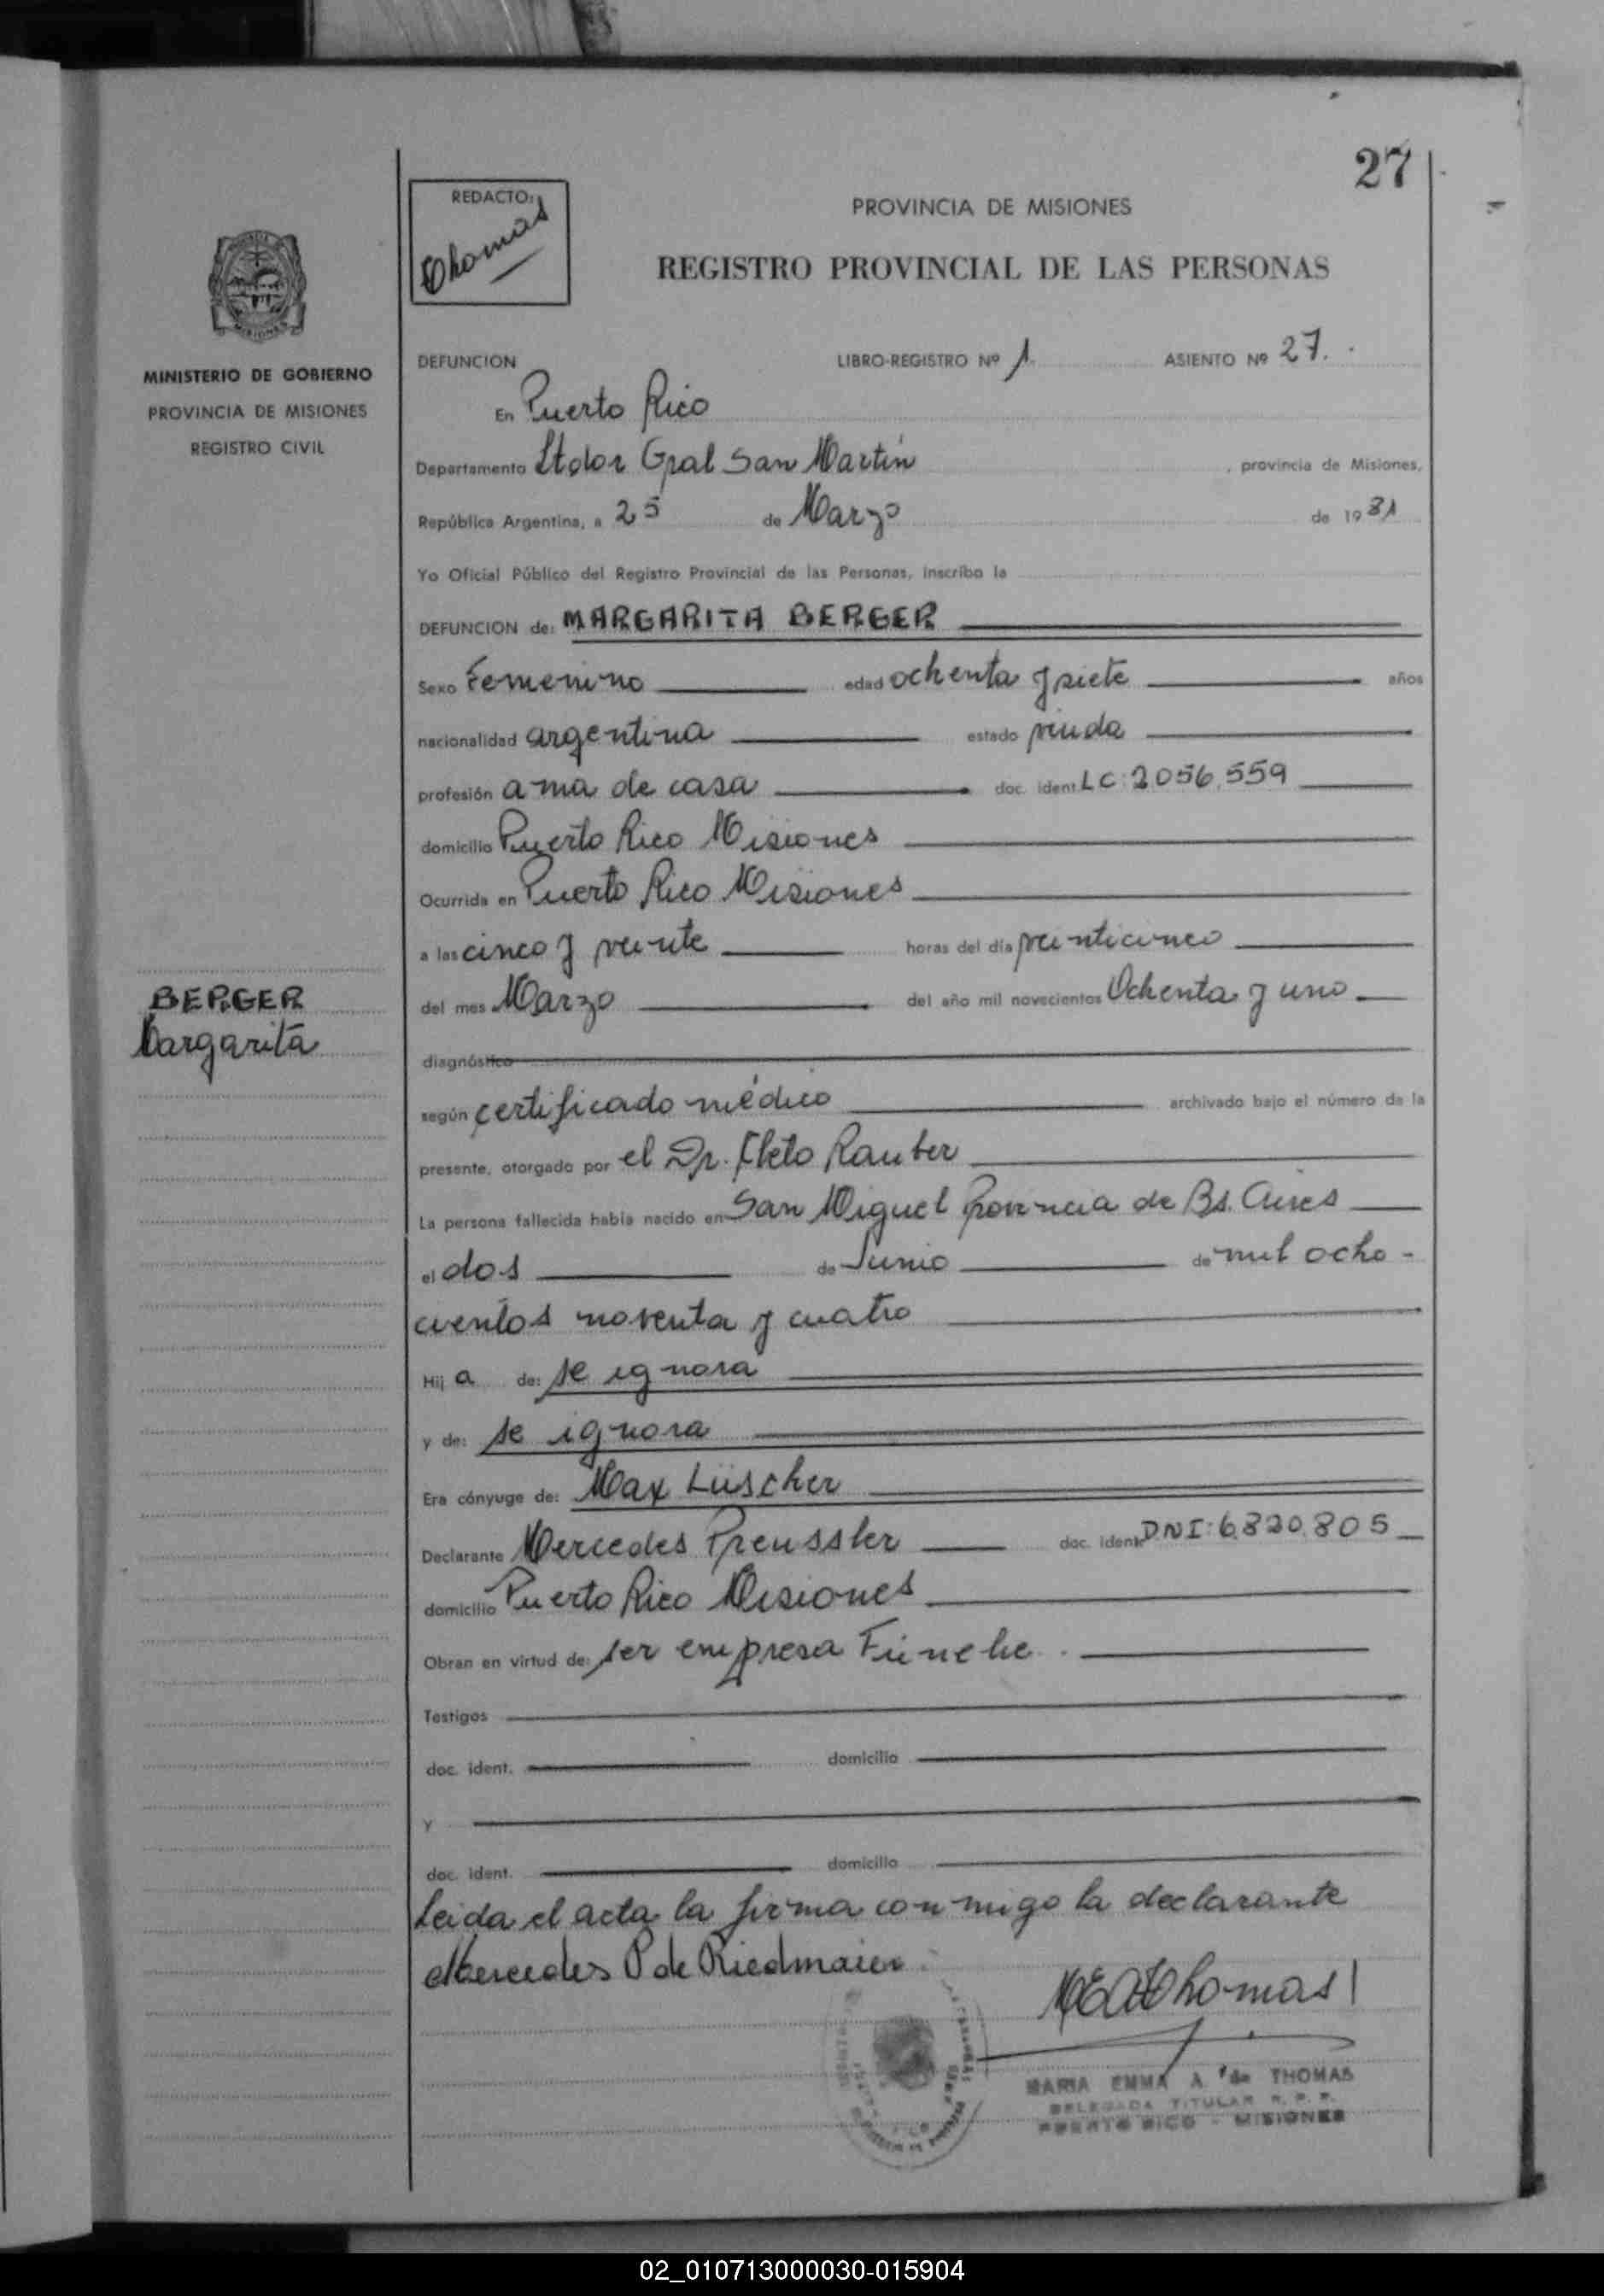 27
REDACTO:
Thomas
PROVINCIA DE MISIONES
REGISTRO PROVINCIAL DE LAS PERSONAS
MISIONES
MINISTERIO DE GOBIERNO
PROVINCIA DE MISIONES
REGISTRO CIVIL
DEFUNCION LIBRO-REGISTRO Nº 1 ASIENTO Nº 27.
En Puerto Rico
Departamento Ltdor Gral San Martín , provincia de Misiones,
República Argentina, a 25 de Marzo de 1981
Yo Oficial Público del Registro Provincial de las Personas, inscribo la
DEFUNCION de: MARGARITA BERGER
Sexo Femenino edad ochenta y siete años
nacionalidad argentina estado viuda
profesión ama de casa doc. ident. LC: 2.056.559
domicilio Puerto Rico Misiones
Ocurrida en Puerto Rico Misiones
a las cinco y veinte horas del día veinticinco
del mes Marzo del año mil novecientos Ochenta y uno
BERGER
Margarita
diagnóstico
según certificado médico archivado bajo el número de la
presente, otorgado por el Dr. Cleto Rauber
La persona fallecida había nacido en San Miguel Provincia de Bs. Aires
el dos de Junio de mil ocho -
cientos noventa y cuatro
Hij a de: se ignora
y de: se ignora
Era cónyuge de: Max Lüscher
Declarante Mercedes Preussler doc. ident. DNI: 6.820.805
domicilio Puerto Rico Misiones
Obran en virtud de: ser empresa Fúnebre.
Testigos
doc. ident. domicilio
y
doc. ident. domicilio
Leida el acta la firma conmigo la declarante
Mercedes P de Riedmaier
MEAThomas
MARIA EMMA A. de THOMAS
DELEGADA TITULAR R. P. P.
PUERTO RICO - MISIONES
02_010713000030-015904